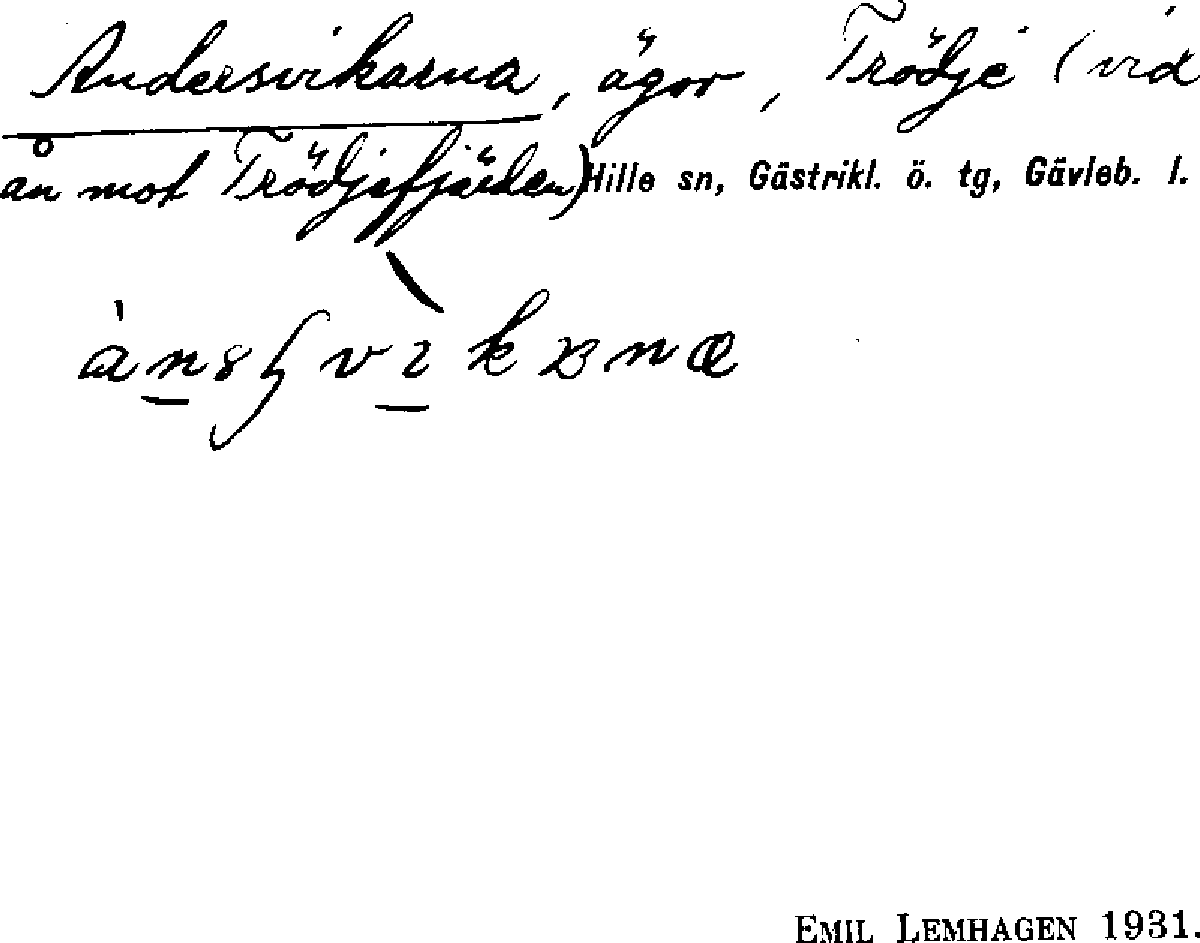 Andersvikarna, ägor, Trödje (vid
ån mot Trödjefjärden) Hille sn, Gästrikl. ö. tg, Gävleb. l.
EMIL LEMHAGEN 1931.